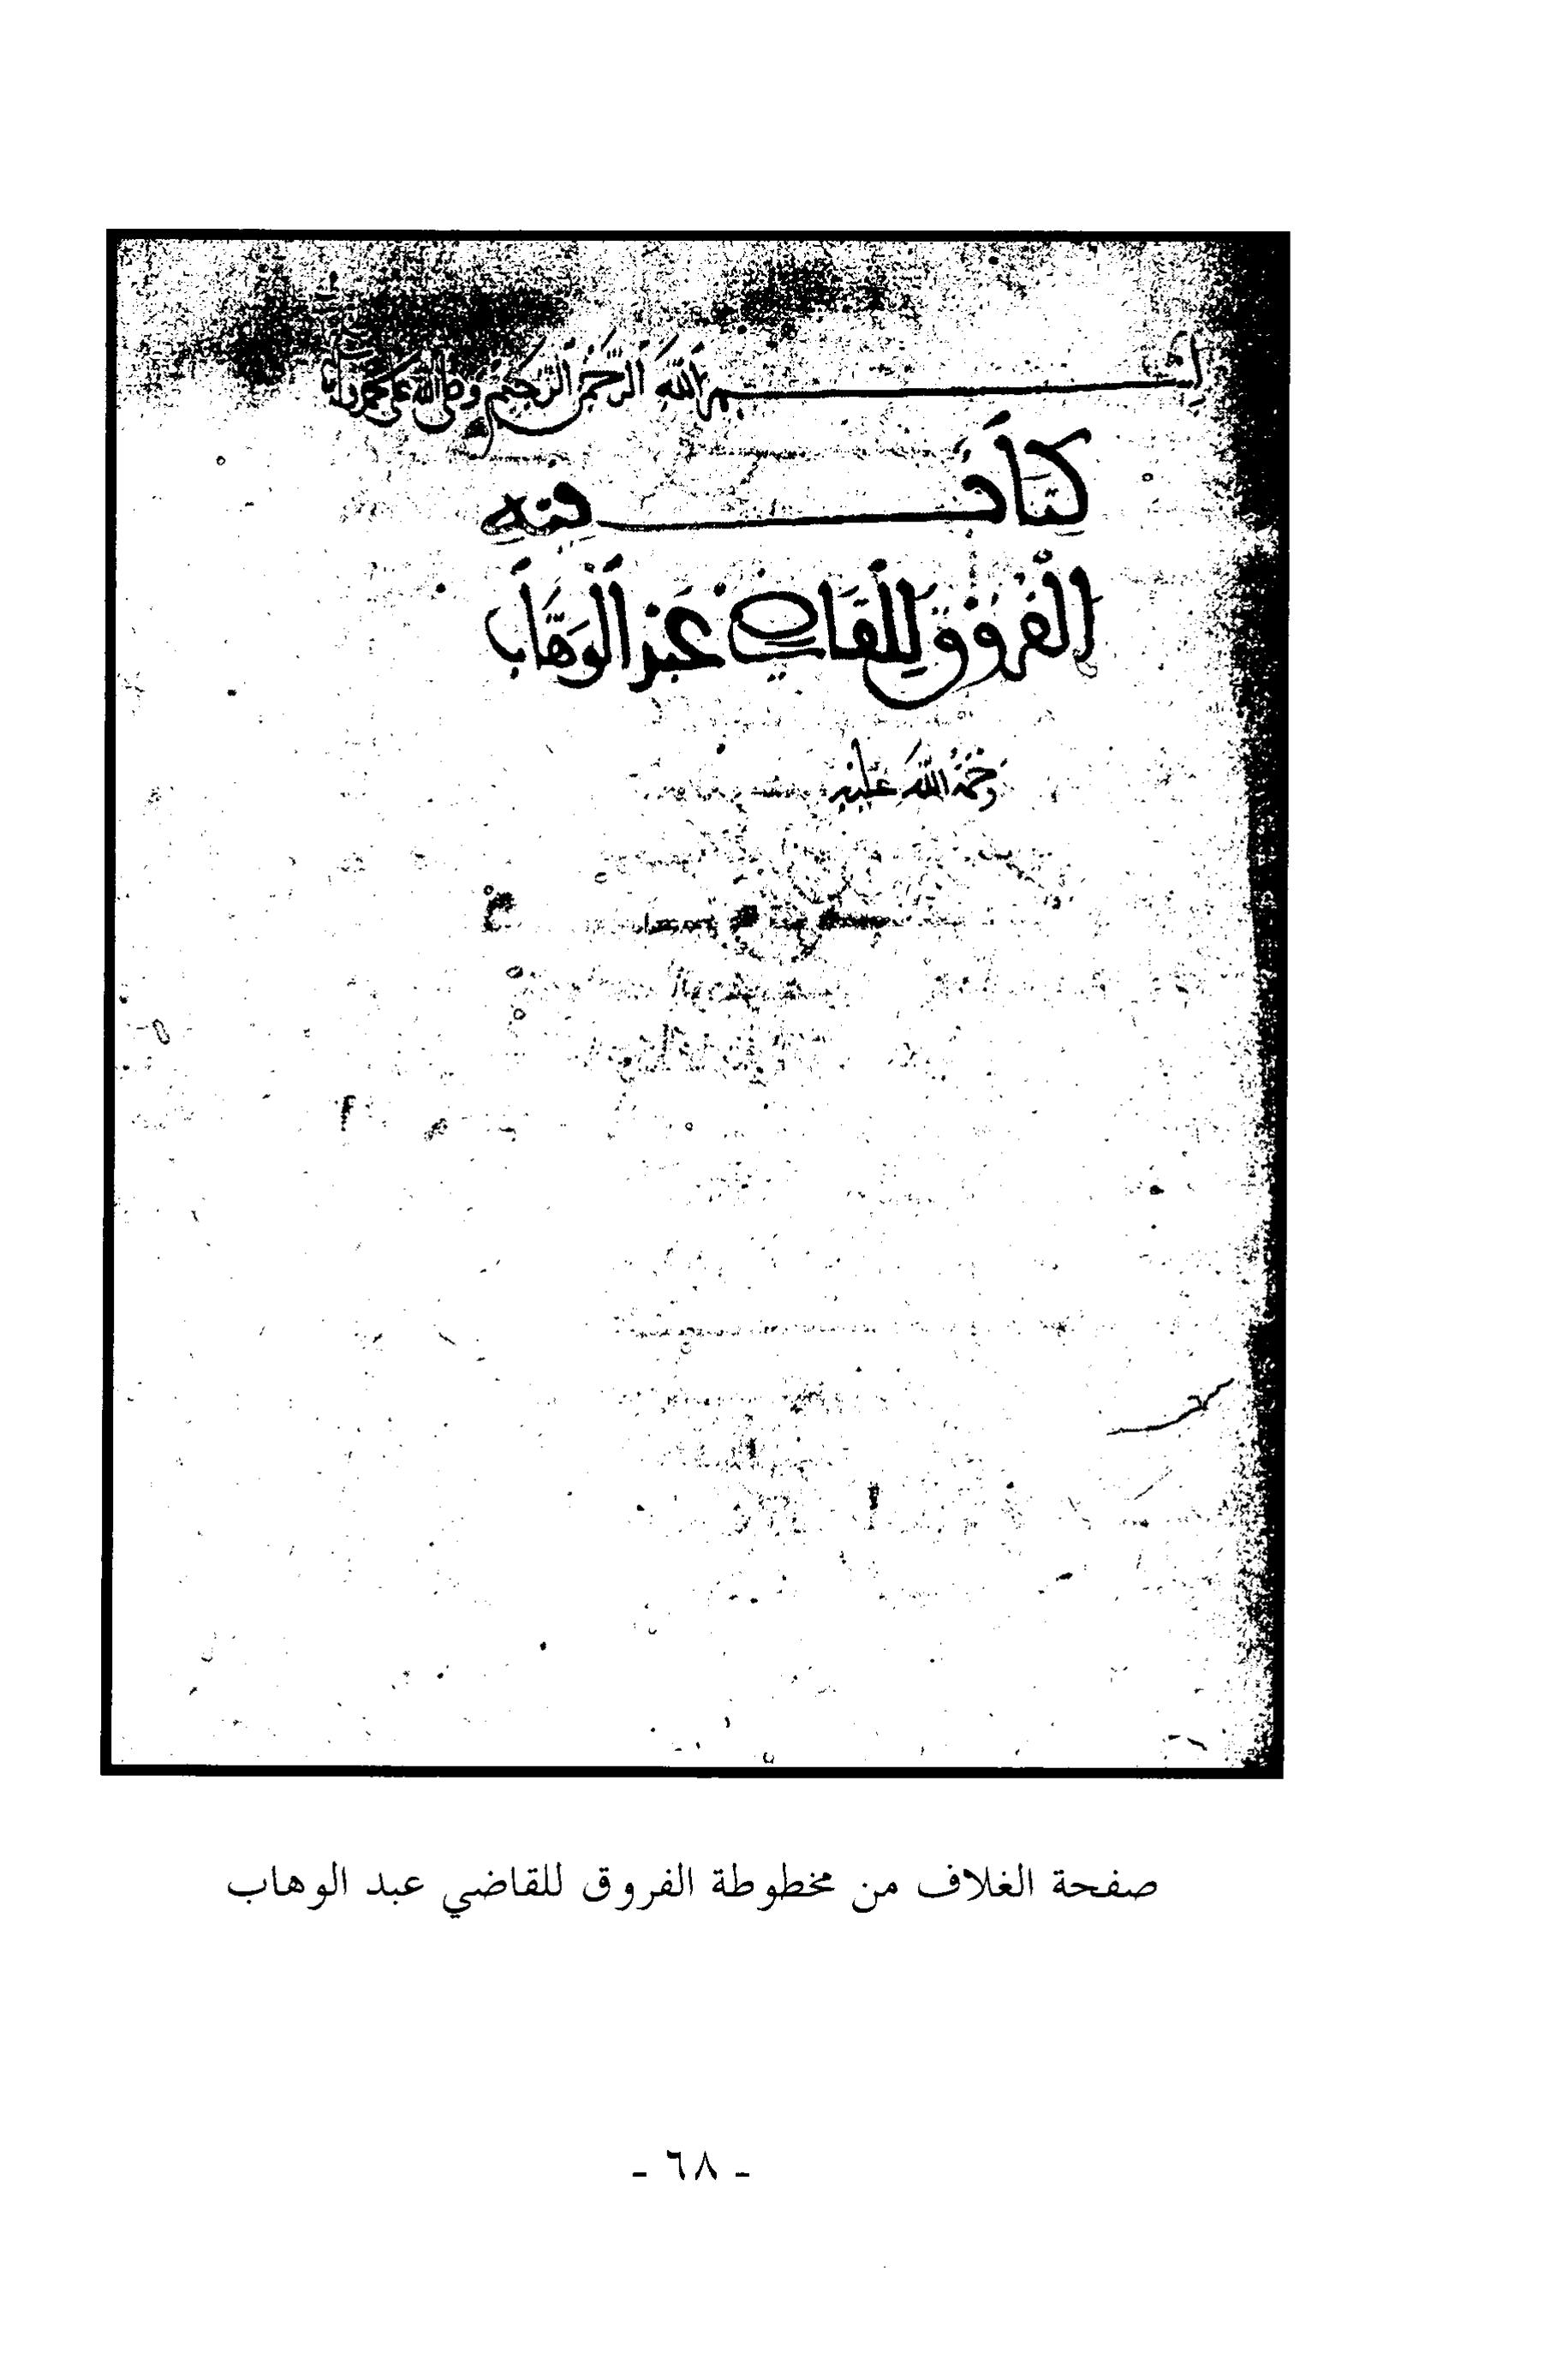 بسم الله الرحمن الرحيم وصلى الله على محمد وآله
كتاب فيه
الفروق للقاضي عبد الوهاب
رحمة الله عليه
صفحة الغلاف من مخطوطة الفروق للقاضي عبد الوهاب
- ٦٨ -